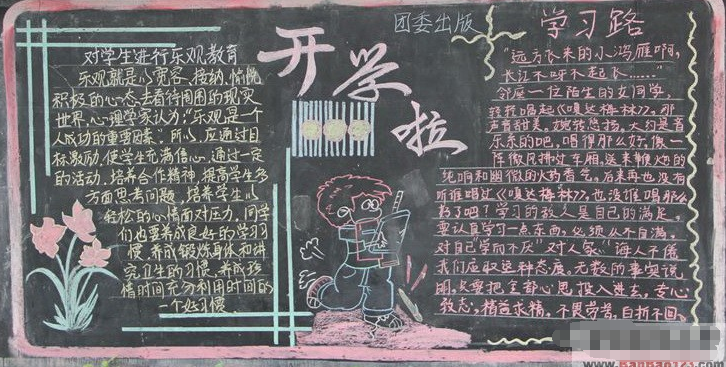 团委出版
开学啦
对学生进行乐观教育
乐观就是以宽容、接纳、愉悦
积极的心态去看待周围的现实
世界,心理学家认为:"乐观是一个
人成功的重要因素"。所以,应通过目
标激励,使学生充满信心,通过一定
的活动,培养合作精神,提高学生多
方面思考问题,培养学生以
轻松的心情面对压力,同学
们也要养成良好的学习习
惯,养成锻炼身体和讲
究卫生的习惯,养成珍
惜时间充分利用时间的
一个好习惯.
学习路
"远方飞来的小鸿雁啊,
长江不呀不起飞……"
邻屋一位陌生的女同学,
轻我唱起《嘎达梅林》,那
声音甜美,婉转悠扬。大约是音
乐系的吧,唱得那么好,像一
阵微风拂过车厢,送来
炖响和幽微的火药香气。后来再也没有
听谁唱过《嘎达梅林》,也没谁唱那么
好了吧?学习的敌人是自己的满足,
要认真学习一点东西,必须从不自满,
对自己学而不厌"对人家"诲人不倦
我们应取这种态度。无数的事实说
明,只要把全部心思投入进去,专心
致志,精益求精,不畏劳苦,百折不回